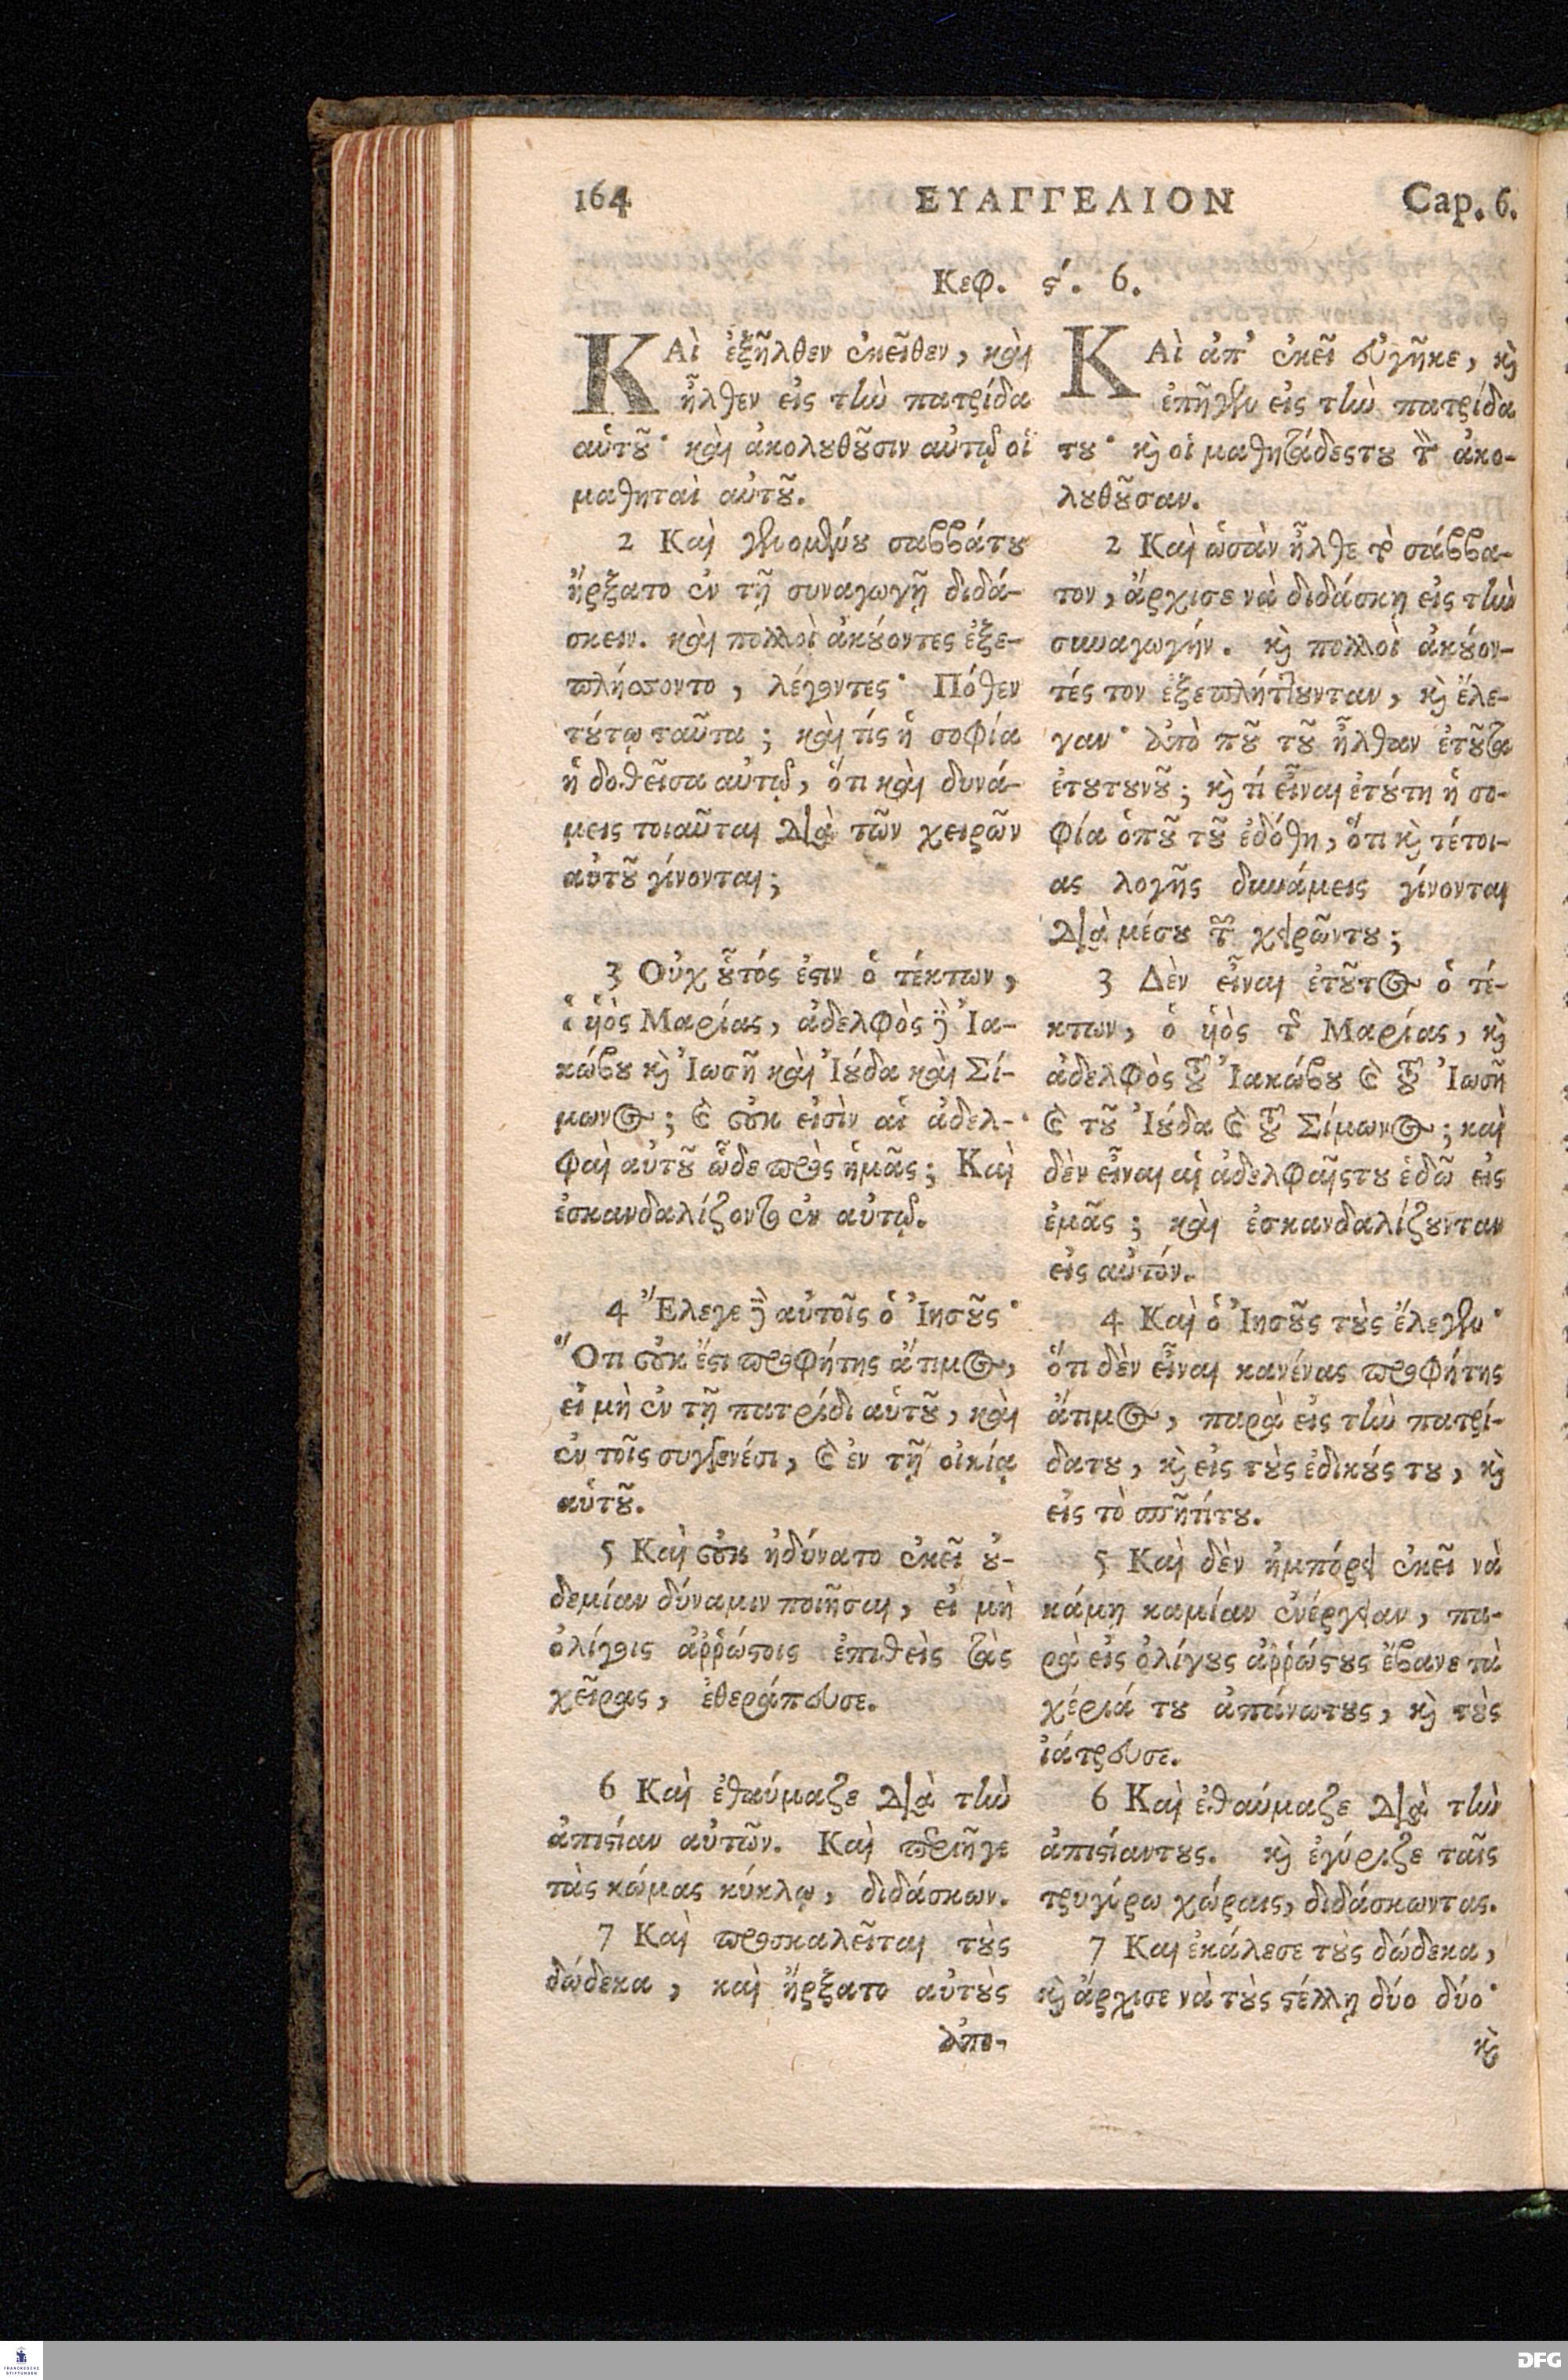 164 ΕΥΑΓΓΕΛΙΟΝ Cap. 6.
Κεφ. ϛʹ. 6.
ΚΑὶ ἐξῆλθεν ἐκεῖθεν, καὶ
ἦλθεν εἰς τὴν πατρίδα
αὑτȣ͂· καὶ ἀκολȣθȣ͂σιν αὐτῷ οἱ
μαθηταὶ αὐτȣ͂.
2 Καὶ γενομένȣ σαββάτȣ
ἤρξατο ἐν τῇ συναγωγῇ διδά-
σκειν. καὶ πολλοὶ ἀκȣ́οντες ἐξε-
πλήσσοντο, λέγοντες· Πόθεν
τȣ́τῳ ταῦτα; καὶ τίς ἡ σοφία
ἡ δοθεῖσα αὐτῷ, ὅτι καὶ δυνά-
μεις τοιαῦται διὰ τῶν χειρῶν
αὐτȣ͂ γίνονται;
3 Οὐχ ȣ̓͂τός ἐϛιν ὁ τέκτων,
ὁ ἡὸς Μαρίας, ἀδελφὸς δὲ Ἰα-
κώβȣ κ̀ Ἰωσῆ καὶ Ἰȣ́δα καὶ Σί-
μωνος; καὶ οὐκ εἰσὶν αἱ ἀδελ-
φαὶ αὐτȣ͂ ὧδε πρὸς ἡμᾶς; Καὶ
ἐσκανδαλίζοντο ἐν αὐτῷ.
4 Ἔλεγε δὲ αὐτοῖς ὁ Ἰησȣ͂ς·
Ὅτι οὐκ ἔϛι προφήτης ἄτιμος,
εἰ μὴ ἐν τῇ πατρίδι αὑτȣ͂, καὶ
ἐν τοῖς συγγενέσι, καὶ ἐν τῇ οἰκίᾳ
αὑτȣ͂.
5 Καὶ οὐκ ἠδύνατο ἐκεῖ ȣ̓-
δεμίαν δύναμιν ποιῆσαι, εἰ μὴ
ὀλίγοις ἀῤῥώϛοις ἐπιθεὶς τὰς
χεῖρας, ἐθεράπευσε.
6 Καὶ ἐθαύμαζε διὰ τὴν
ἀπιϛίαν αὐτῶν. Καὶ περιῆγε
τὰς κώμας κύκλῳ, διδάσκων.
7 Καὶ προσκαλεῖται τȣ̀ς
δώδεκα, καὶ ἤρξατο αὐτȣ̀ς
ἀπο-
ΚΑὶ ἀπ' ἐκεῖ εὐγῆκε, κ̀
ἐπῆγεν εἰς τὴν πατρίδα
τȣ· κ̀ οἱ μαθητάδεςτȣ τὸν ἀκο-
λȣθȣ͂σαν.
2 Καὶ ὡσὰν ἦλθε τὸ σάββα-
τον, ἄρχισε νὰ διδάσκῃ εἰς τὴν
συναγωγήν. κ̀ πολλοὶ ἀκȣ́ον-
τές τον ἐξεπλήττȣνταν, κ̀ ἔλε-
γαν· ἀπὸ πȣ͂ τȣ͂ ἦλθαν ἐτȣ͂τα
ἐτȣτȣνȣ͂; κ̀ τί εἶναι ἐτȣ́τη ἡ σο-
φία ὁπȣ͂ τȣ͂ ἐδόθη, ὅτι κ̀ τέτοι-
ας λογῆς δυνάμεις γίνονται
διὰ μέσȣ τῶν χειρῶντȣ;
3 Δὲν εἶναι ἐτȣ͂τος ὁ τέ-
κτων, ὁ ἡὸς τῆς Μαρίας, κ̀
ἀδελφὸς τȣ͂ Ἰακώβȣ καὶ τȣ͂ Ἰωσῆ
καὶ τȣ͂ Ἰȣ́δα καὶ τȣ͂ Σίμωνος; καὶ
δὲν εἶναι αἱ ἀδελφαῖςτȣ ἐδῶ εἰς
ἐμᾶς; καὶ ἐσκανδαλίζȣνταν
εἰς αὐτόν.
4 Καὶ ὁ Ἰησȣ͂ς τȣ̀ς ἔλεγεν·
ὅτι δὲν εἶναι κανένας προφήτης
ἄτιμος, παρὰ εἰς τὴν πατρί-
δατȣ, κ̀ εἰς τȣ̀ς ἐδικȣ́ς τȣ, κ̀
εἰς τὸ σπῆτίτȣ.
5 Καὶ δὲν ἠμπόρει ἐκεῖ νὰ
κάμῃ καμίαν ἐνέργειαν, πα-
ρὰ εἰς ὀλίγȣς ἀῤῥώϛȣς ἔβανε τὰ
χέριά τȣ ἀπάνωτȣς, κ̀ τȣ̀ς
ἰάτρευσε.
6 Καὶ ἐθαύμαζε διὰ τὴν
ἀπιϛίαντȣς. κ̀ ἐγύριζε ταῖς
τρυγύρω χώραις, διδάσκωντας.
7 Και ἐκάλεσε τȣ̀ς δώδεκα,
κ̀ ἄρχισε νὰ τȣ̀ς ϛέλλῃ δύο δύο·
κ̀
DFG
FRANCKESCHE
STIFTUNGEN